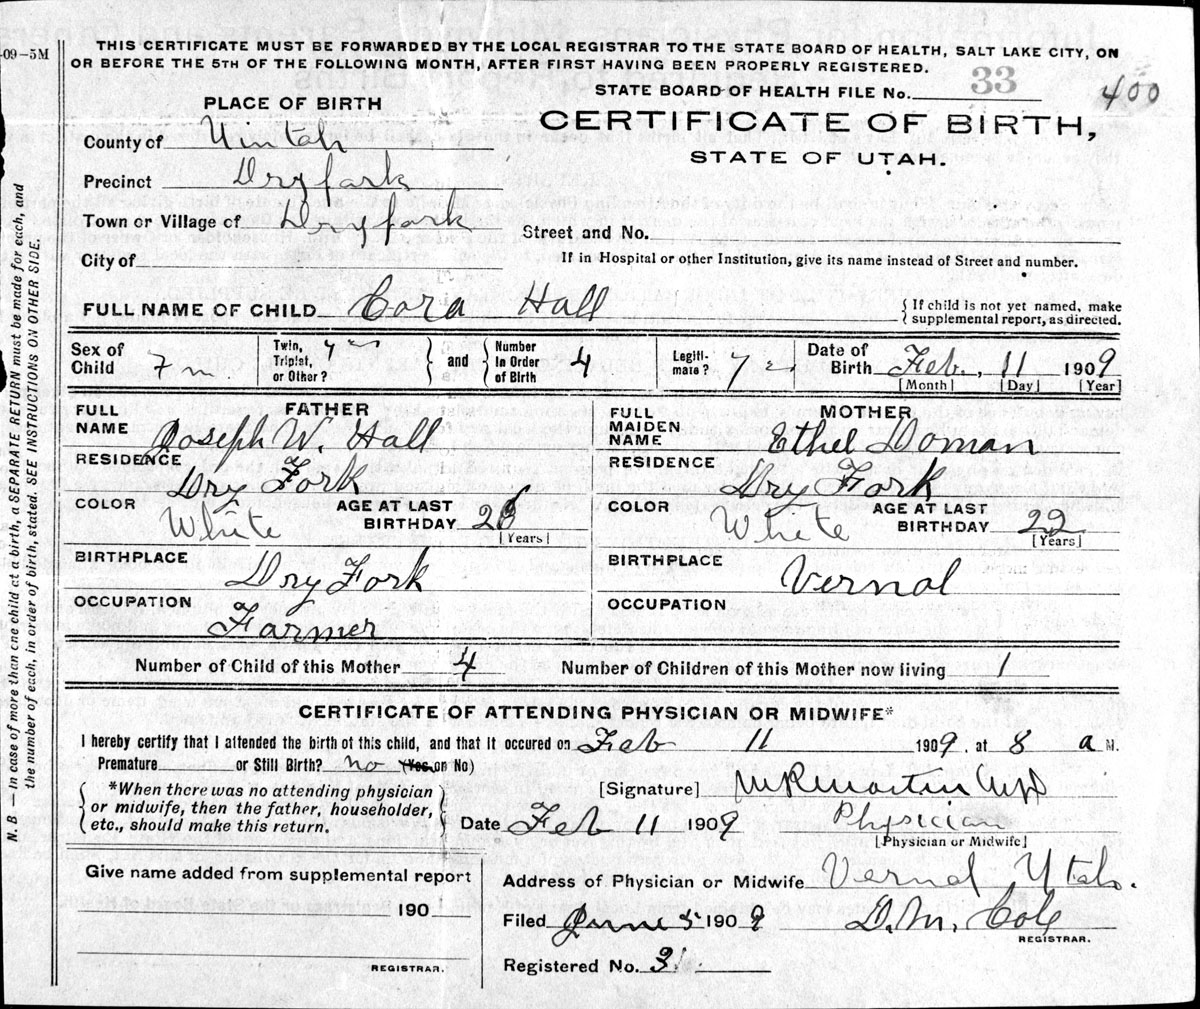 -09-5M
THIS CERTIFICATE MUST BE FORWARDED BY THE LOCAL REGISTRAR TO THE STATE BOARD OF HEALTH, SALT LAKE CITY, ON
OR BEFORE THE 5TH OF THE FOLLOWING MONTH, AFTER FIRST HAVING BEEN PROPERLY REGISTERED.
STATE BOARD OF HEALTH FILE No. 33
400
PLACE OF BIRTH
CERTIFICATE OF BIRTH,
STATE OF UTAH.
County of Uintah
Precinct Dryfork
Town or Village of Dryfork
Street and No.
City of
If in Hospital or other Institution, give its name instead of Street and number.
FULL NAME OF CHILD Cora Hall
{ If child is not yet named, make
supplemental report, as directed.
Sex of Child 7 m.
Twin, Triplet, or Other?
and
Number in Order of Birth 4
Legiti-mate?
Date of Birth Feb., 11 1909
[Month] [Day] [Year]
FULL NAME FATHER Joseph W. Hall
RESIDENCE Dry Fork
COLOR White
AGE AT LAST BIRTHDAY
[Years]
BIRTHPLACE Dry Fork
OCCUPATION Farmer
FULL MAIDEN NAME MOTHER Ethel Doman
RESIDENCE Dry Fork
COLOR White
AGE AT LAST BIRTHDAY 22
[Years]
BIRTHPLACE Vernal
OCCUPATION
Number of Child of this Mother 4 Number of Children of this Mother now living 1
CERTIFICATE OF ATTENDING PHYSICIAN OR MIDWIFE*
I hereby certify that I attended the birth of this child, and that it occured on Feb 11 1909, at 8 a M.
Premature or Still Birth? no (Yes or No)
*When there was no attending physician
or midwife, then the father, householder,
etc., should make this return.
[Signature]
Date Feb 11 1909 Physician
[Physician or Midwife]
Give name added from supplemental report
190
REGISTRAR.
Address of Physician or Midwife Vernal Utah.
Filed June 5 1909 D. M. Cole
REGISTRAR.
Registered No.
N. B.—In case of more than one child at a birth, a SEPARATE RETURN must be made for each, and
the number of each, in order of birth, stated. SEE INSTRUCTIONS ON OTHER SIDE.